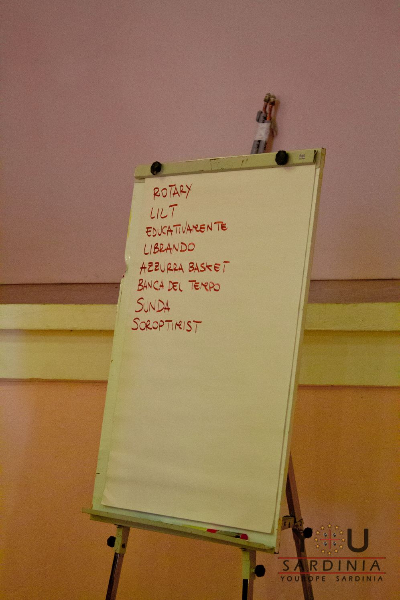 ROTARY
LILT
EDUCATIVAMENTE
LIBRANDO
AZZURRA BASKET
BANCA DEL TEMPO
SUNDA
SOROPTIMIST
U
SARDINIA
YOUROPE SARDINIA